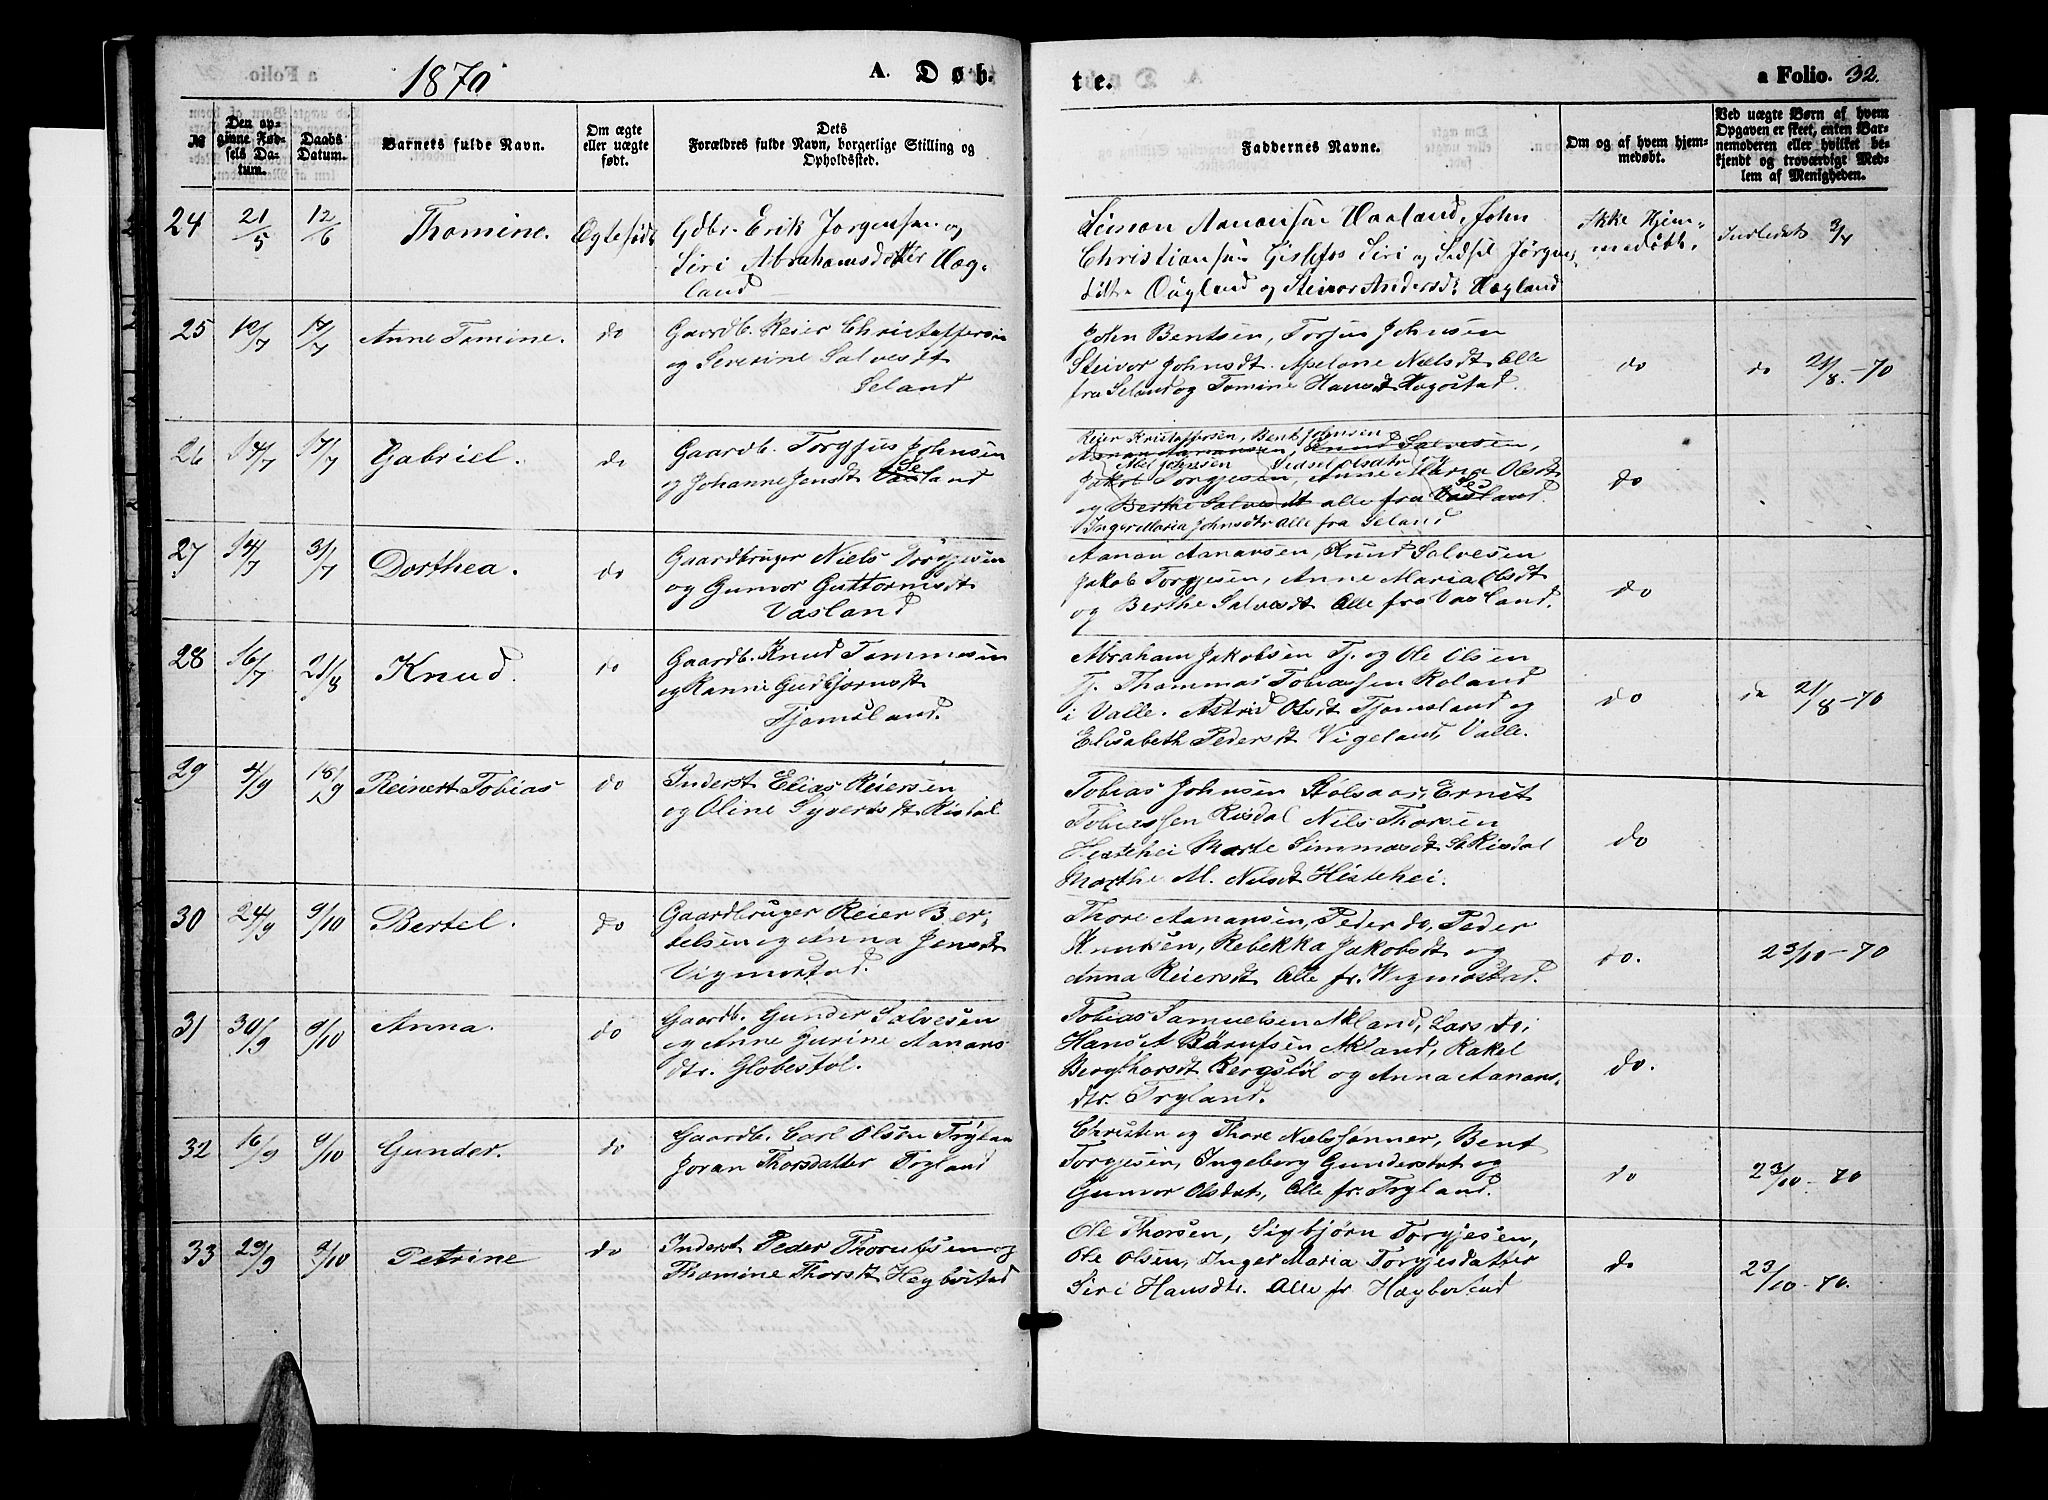 1870
A. Døb-
te.
a Folio. 32.
№
Den opgivne Fødsels Datum.
Daabs Datum.
Barnets fulde Navn.
Om ægte eller uægte født.
Dets Forældres fulde Navn, borgerlige Stilling og Opholdssted.
Faddernes Navne.
Om og af hvem hjemmedøbt.
Ved uægte Børn af hvem Opgaven er skeet, enten Barnemoderen eller hvilket bekjendt og troværdigt Medlem af Menigheden.
24 21/5 12/6 Thomine. Ægtefødt
Gdbr. Erik Jørgensen og
Siri Abrahamsdatter Hæg-
land
Simon Aanonsen Haaland, John
Christiansen Gislefos Siri og Sidsel Jørgens
dttr Øugland og Steivor Andersdt Hægland
Ikke Hjem-
medøbt.
Indledet 3/7
25 12/7 17/7 Anne Tomine. do
Gaardb. Reier Christoffersen
og Severine Salvesdt
Seland
John Bentsen, Torjus Johnsen
Steivor Johnsdt. Apelone Nielsdt Alle
fra Seland og Tomine Hansdt Høgestad.
do
do 21/8 - 70
26 14/7 17/7 Gabriel. do
Gaardb. Torgjus Johnsen
og Johanne Jensdt Seland
Reier Kristoffersen, Bent Johnsen
Aanon Aanonsen, Knud Salvesen,
Abel Johnsen Sidsel Olsdatter
Jakob Torgjesen, Anne Maria Olsdt
og Berthe Salvesdt alle fra Vasland.
Inger Maria Johnsdtr Alle fra Seland
do
27 14/7 31/7 Dorthea. do
Gaardbruger Niels Torgjesen
og Gunvor Guttormsdt
Vasland
Aanon Aanonsen, Knud Salvesen
Jakob Torgjesen, Anne Maria Olsdt
og Berthe Salvesdt Alle fra Vasland.
do
28 16/7 21/8 Knud. do
Gaardb. Knud Tommesen
og Ranne Gudbjørnsdt
Tjomsland.
Abraham Jakobsen Tj. og Ole Olsen
Tj. Thommas Tobiassen Roland
i Valle. Astrid Olsdt Tjomsland og
Elisabeth Pedersdt Vigeland, Valle.
do
do 21/8 - 70
29 4/9 18/9 Reinert Tobias do
Inderst Elias Reiersen
og Oline Syversdt Risdal
Tobias Johnsen Stølsaas, Ernst
Tobiassen Risdal Nils Thorsen
Hestehei Marte Simmonsdt St Risdal
Marthe M. Nelsdt Hestehei.
do
30 24/9 9/10 Bertel. do
Gaardbruger Reier Ber-
telsen og Anna Jensdt
Vigmostad.
Thore Aanonsen, Peder do, Peder
Knudsen, Rebekka Jakobsdt og
Anna Reiersdt Alle fr. Wigmostad.
do.
23/10 - 70
31 30/9 9/10 Anna. do
Gaardb. Gunder Salvesen
og Anne Gurine Aanons
dtr. Globestøl.
Tobias Samuelsen Akland, Lars do,
Hans A Børufsen Akland, Rakel
Bergthorsdt Bergstøl og Anna Aanons-
dtr. Trygland.
do.
32 16/9 9/10 Gunder. do
Gaardb. Carl Olsen Trylan
Joran Thorsdatter Trygland
Christen og Thore Nielssønner, Bent
Torgjesen, Ingeborg Gundersdat og
Gunvor Olsdat, Alle fr. Trygland.
do
23/10 - 70
33 29/9 9/10 Petrine do
Inderst Peder Thorufsen og
Thomine Thorsdt Hegbostad
Ole Thorsen, Sigbjørn Torgjesen,
Ole Olsen, Inger Maria Torgjesdatter
Siri Hansdtr. Alle fr Hægbostad
do
23/10 - 70.